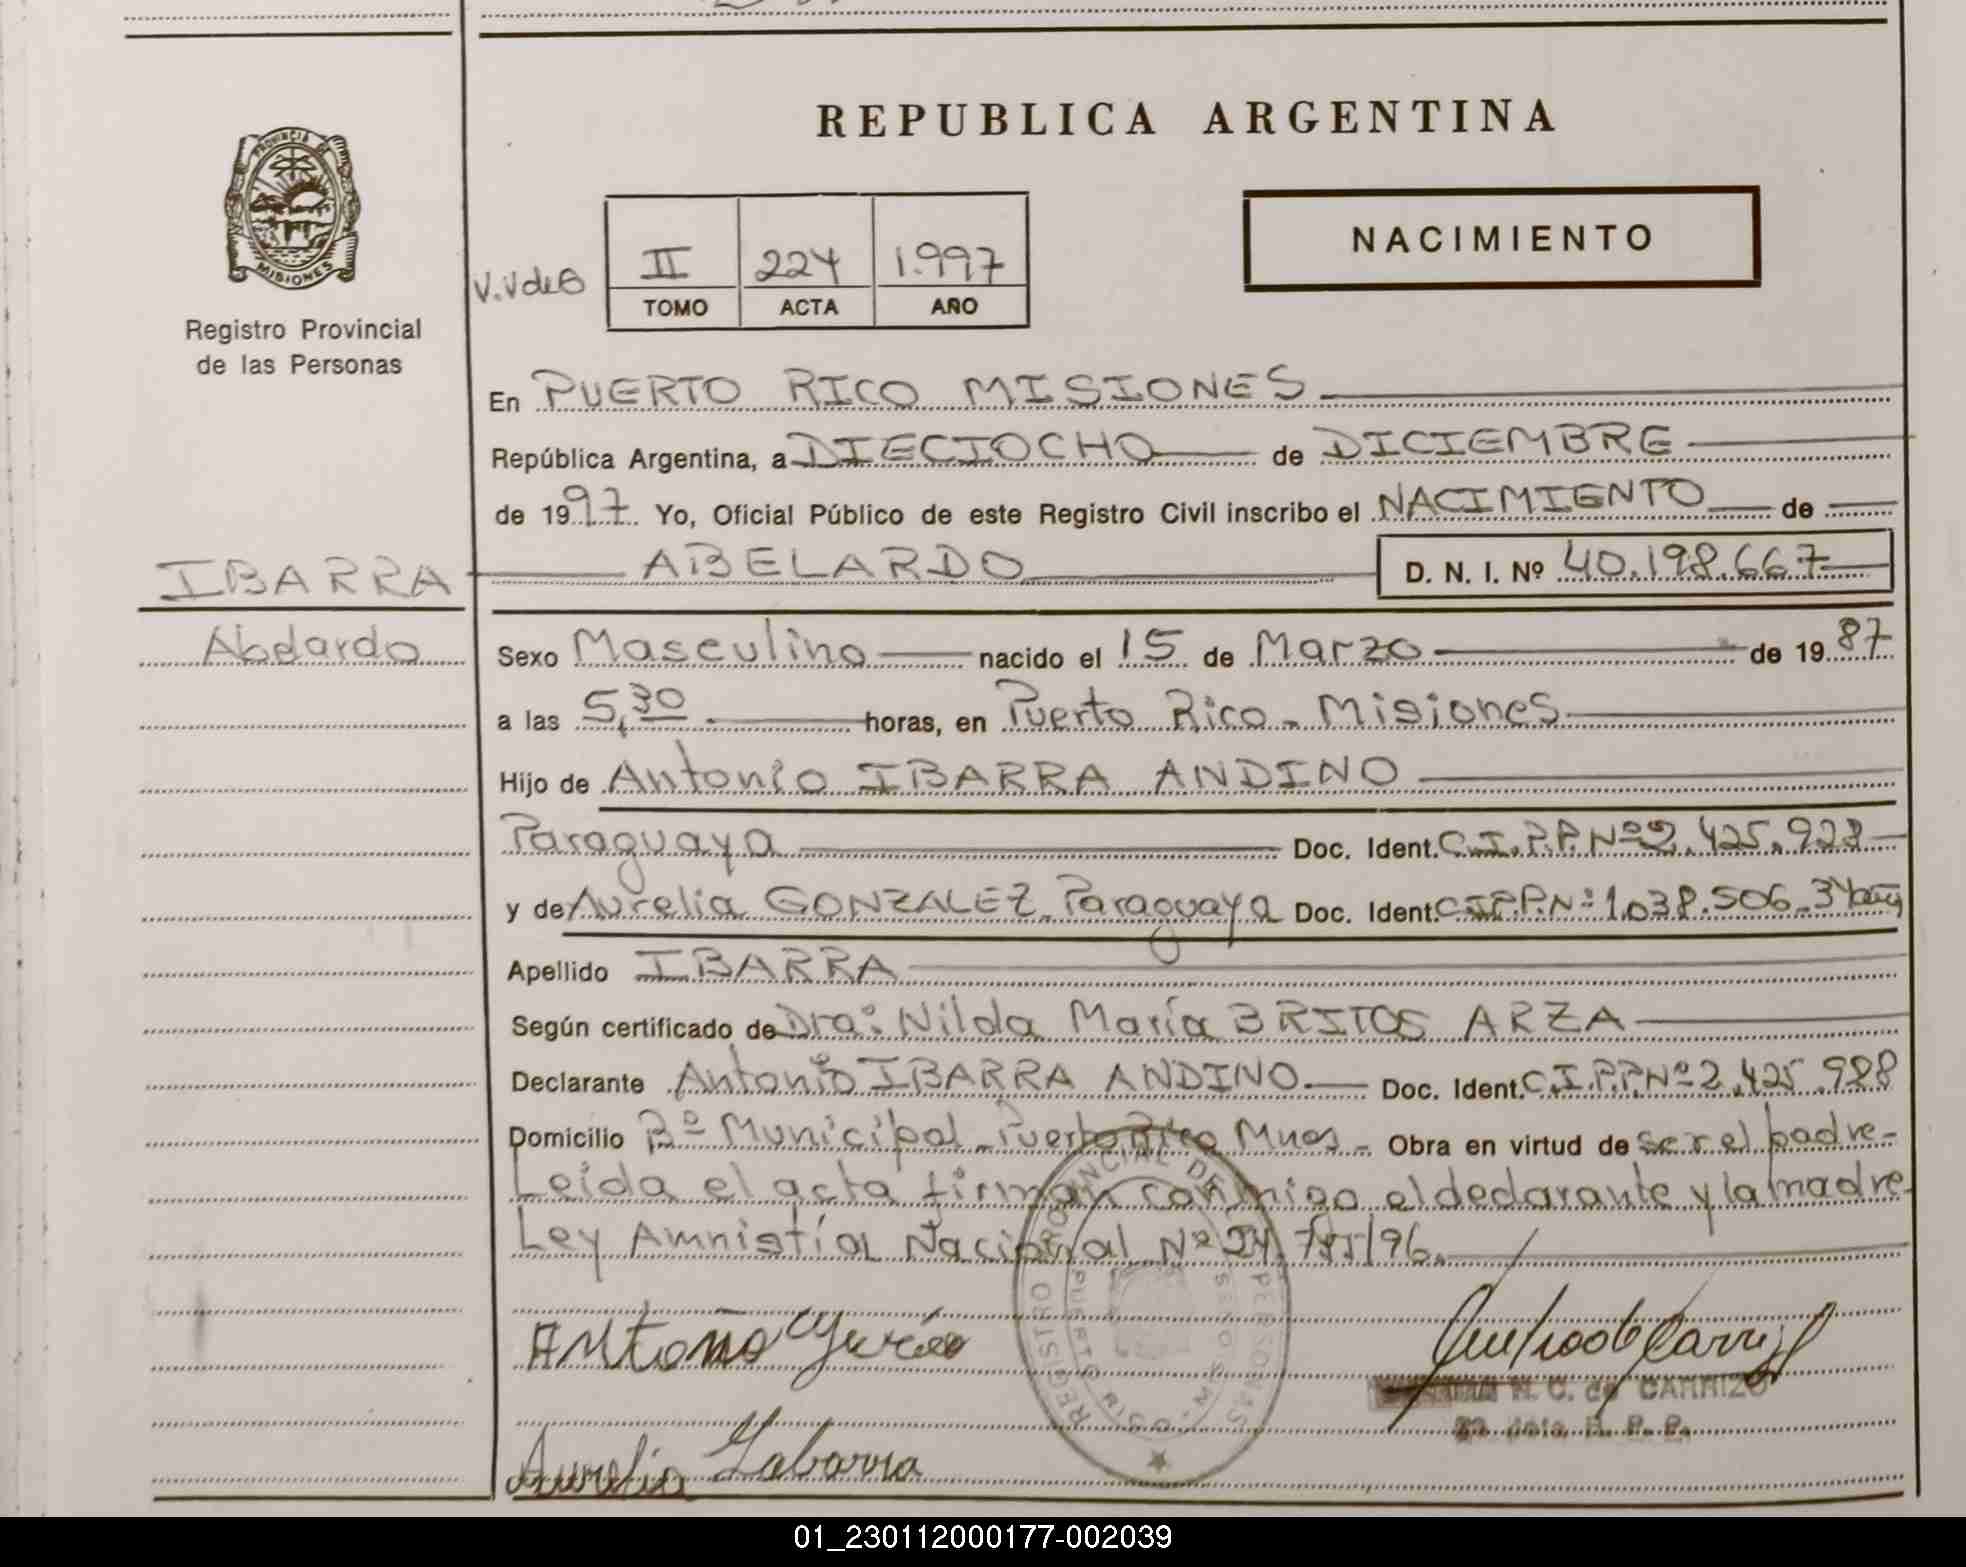 REPUBLICA ARGENTINA
PROVINCIA DE
MISIONES
Registro Provincial
de las Personas
V.V de B
II 224 1.997
TOMO ACTA AÑO
NACIMIENTO
En PUERTO RICO MISIONES
República Argentina, a DIECIOCHO de DICIEMBRE
de 1997. Yo, Oficial Público de este Registro Civil inscribo el NACIMIENTO de
IBARRA ABELARDO D. N. I. Nº 40.198.667
Abelardo
Sexo Masculino nacido el 15 de Marzo de 1987
a las 5,30 horas, en Puerto Rico - Misiones
Hijo de Antonio IBARRA ANDINO
Paraguaya Doc. Ident. C.I.P.P. Nº 2.425.928
y de Aurelia GONZALEZ - Paraguaya Doc. Ident. C.I.P.P. Nº 1.038.506 - 34 años
Apellido IBARRA
Según certificado de Dra: Nilda María BRITOS ARZA
Declarante Antonio IBARRA ANDINO Doc. Ident. C.I.P.P. Nº 2.425.928
Domicilio Bº Municipal - Puerto Rico Mnes - Obra en virtud de ser el padre -
Leida el acta firman conmigo el declarante y la madre -
Ley Amnistía Nacional Nº 24. /96.
Antonio
REGISTRO PROVINCIAL DE PERSONAS
PUERTO RICO
N. C. de CARRIZO
R. P. P.
Aurelia
01_230112000177-002039